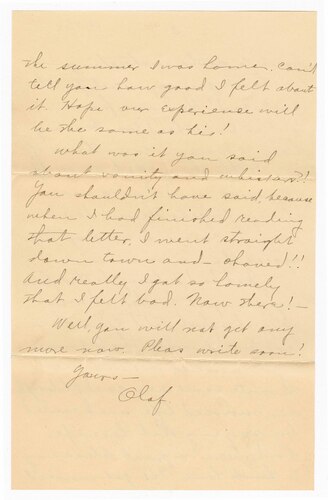 the summer I was home. Can't
tell you how good I felt about
it. Hope our experience will
be the same as his!
What was it you said
about vanity and whiskers?!
You shouldn't have said, because
when I had finished reading
that letter, I went straight
down town and - shaved!!
And really I got so lonely
that I felt bad. Now there! -
Well, you will not get any
more now. Pleas write soon!
Yours -
Olaf.